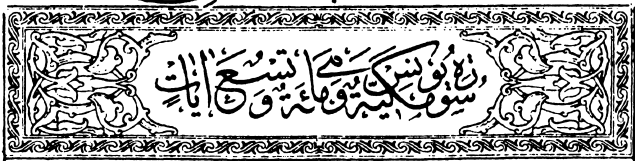 سورة يونس مكية وهي مائة وتسع آيات